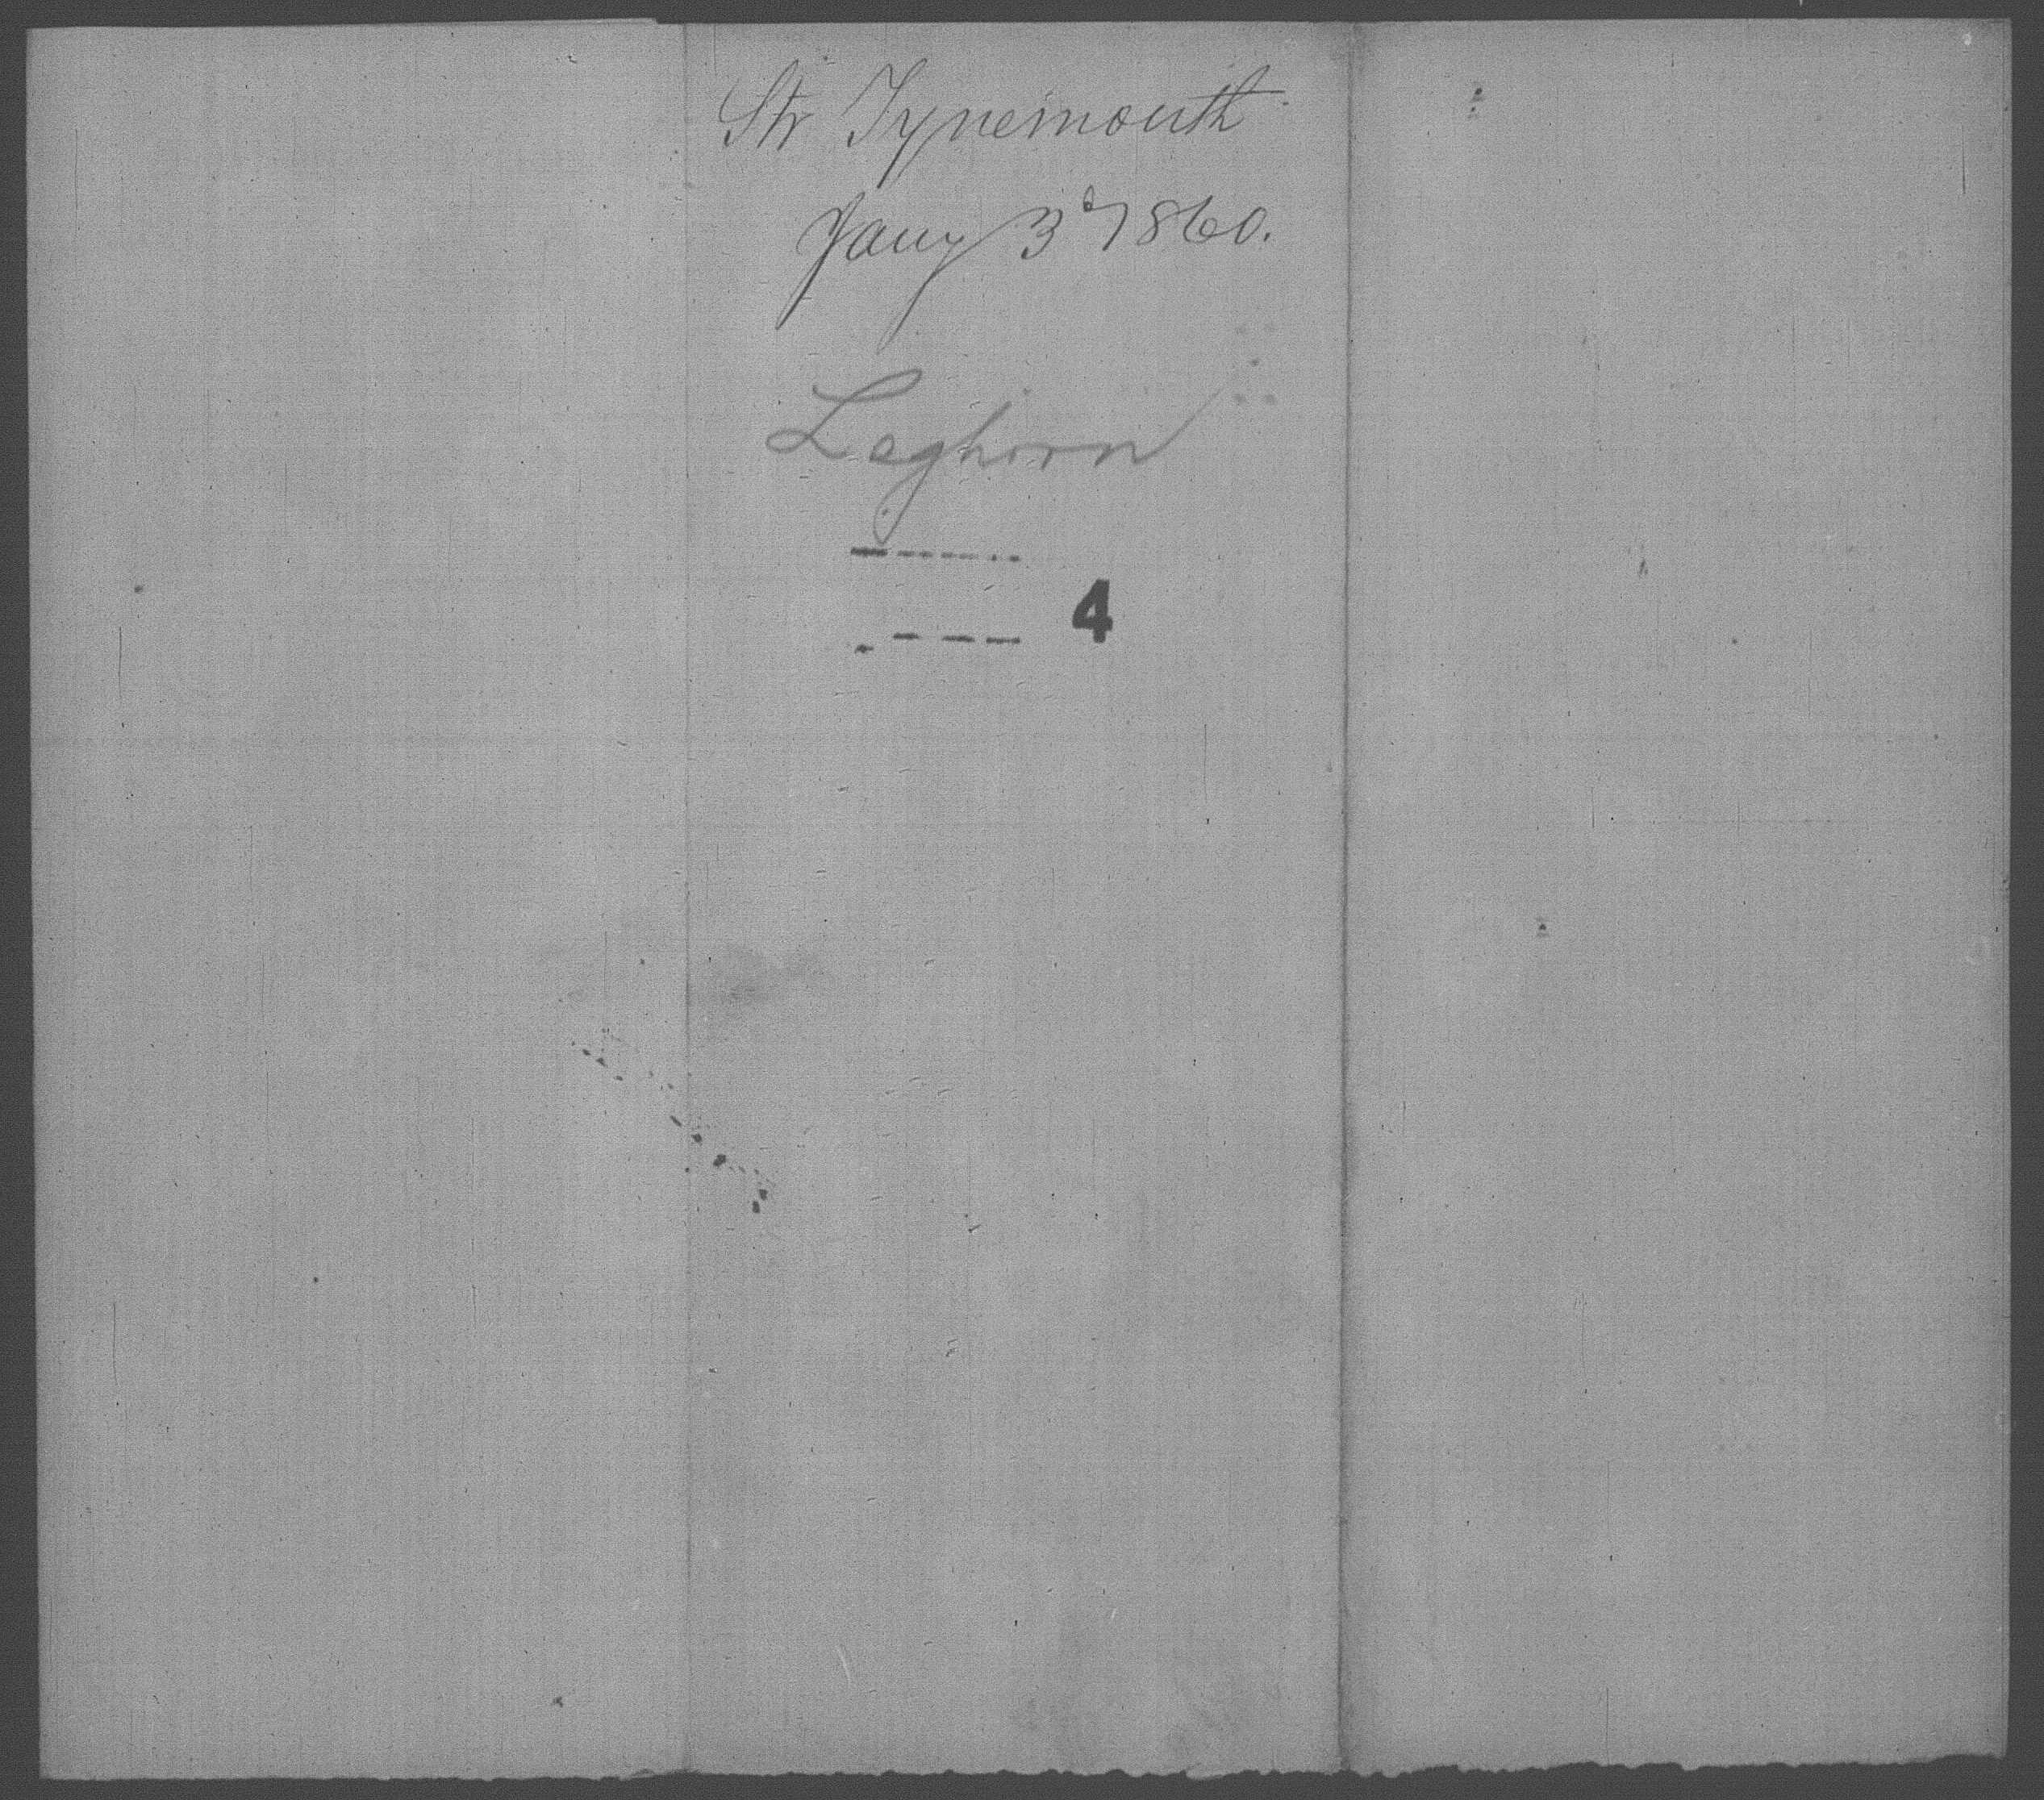 Str Tynemouth
Jany 3d 1860.
Leghorn
4